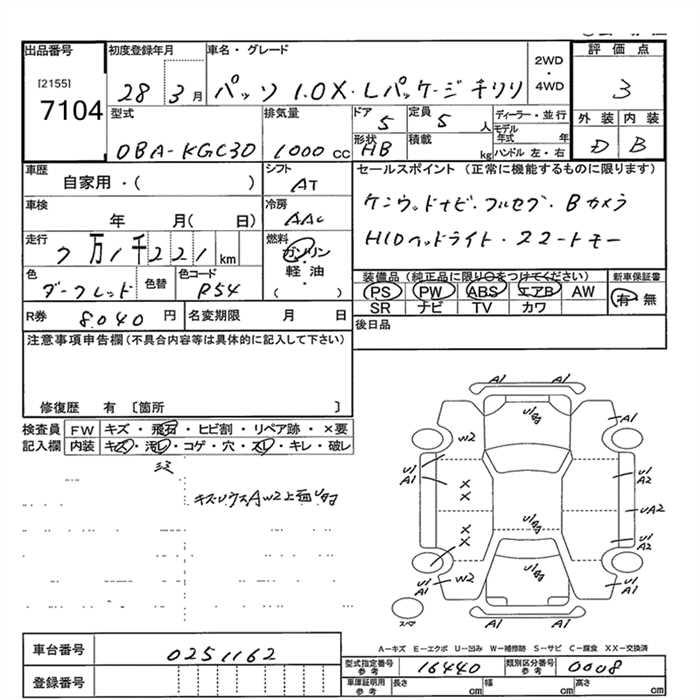 出品番号 初度登録年月 車名・グレード 2WD・4WD 評価点
[2155]
7104 28 3月 パッソ 1.0X・Lパッケージ キリリ 3
型式 排気量 ドア 定員 ディーラー・並行 外装 内装
DBA-KGC30 1000cc 5 5人 モデル年式 年 D B
形状 積載 HB kg ハンドル 左・右
車歴 シフト セールスポイント (正常に機能するものに限ります)
自家用・( ) AT
車検 冷房 ケンウッドナビ・フルセグ・Bカメラ
年 月( 日) AAC
走行 燃料 HIDヘッドライト・スマートキー
7万1千221km ガソリン・軽油・( )
色 色替 色コード 装備品 (純正品に限り○をつけてください) 新車保証書
ダークレッド R54 PS PW ABS エアB AW 有・無
SR ナビ TV カワ
R券 8040円 名変期限 月 日 後日品
注意事項申告欄(不具合内容等は具体的に記入して下さい)
修復歴 有 〔箇所 〕
検査員 FW キズ・飛石・ヒビ割・リペア跡・×要
記入欄 内装 キズ・汚レ・コゲ・穴・スレ・キレ・破レ
A1 A1
U1 A1
W2
U1 A1 U1 A1
X
X UA2
X
X U1 A2
U1 A1 W2 U1 A1
A1 A1
スペア
A-キズ E-エクボ U-凹み W-補修跡 S-サビ C-腐食 XX-交換済
車台番号 0251162
型式指定番号 参考 16440 類別区分番号 参考 0008
登録番号 車庫証明用 参考 長さ cm 幅 cm 高さ cm